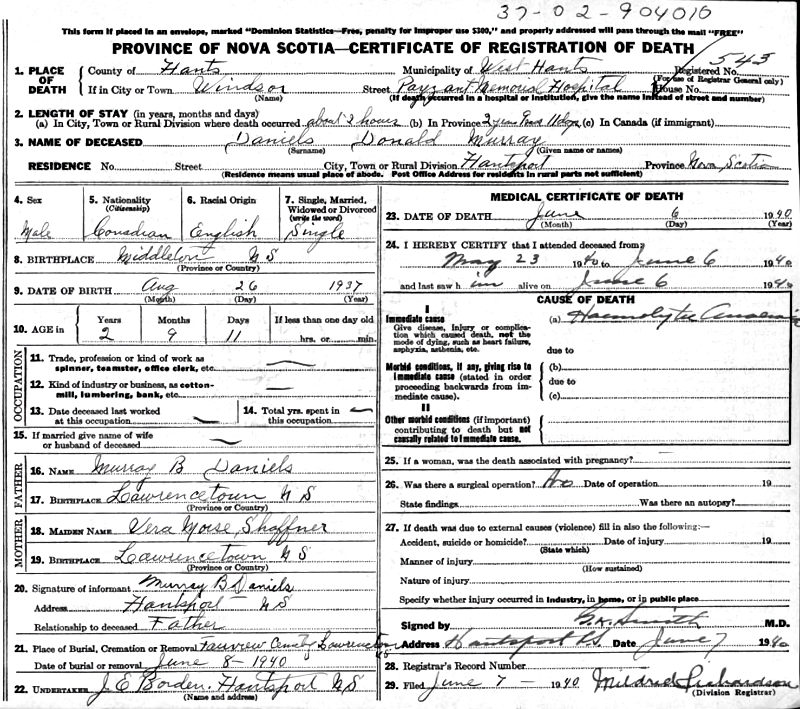 37-02-904010
This form if placed in an envelope, marked "Dominion Statistics—Free, penalty for improper use $300," and properly addressed will pass through the mail "FREE"
PROVINCE OF NOVA SCOTIA—CERTIFICATE OF REGISTRATION OF DEATH
1. PLACE OF DEATH County of Hants Municipality of West Hants Registered No. 543
(For use of Registrar General only)
If in City or Town Windsor Street Payzant Memorial Hospital House No.
(Name) (If death occurred in a hospital or institution, give the name instead of street and number)
2. LENGTH OF STAY (in years, months and days)
(a) In City, Town or Rural Division where death occurred about 2 hours (b) In Province 2 years 9 mos 11 dys (c) In Canada (if immigrant)
3. NAME OF DECEASED Daniels Donald Murray
(Surname) (Given name or names)
RESIDENCE No. Street City, Town or Rural Division Hantsport Province Nova Scotia
(Residence means usual place of abode. Post Office Address for residents in rural parts not sufficient)
4. Sex 5. Nationality (Citizenship) 6. Racial Origin 7. Single, Married, Widowed or Divorced (write the word)
Male Canadian English Single
8. BIRTHPLACE Middleton N S
(Province or Country)
9. DATE OF BIRTH Aug 26 1937
(Month) (Day) (Year)
10. AGE in Years Months Days If less than one day old
2 9 11 hrs. or min.
OCCUPATION
11. Trade, profession or kind of work as spinner, teamster, office clerk, etc. —
12. Kind of industry or business, as cotton-mill, lumbering, bank, etc. —
13. Date deceased last worked at this occupation — 14. Total yrs. spent in this occupation —
15. If married give name of wife or husband of deceased —
FATHER
16. NAME Murray B Daniels
17. BIRTHPLACE Lawrencetown N S
(Province or Country)
MOTHER
18. MAIDEN NAME Vera Morse Shaffner
19. BIRTHPLACE Lawrencetown N S
(Province or Country)
20. Signature of informant Murray B Daniels
Address Hantsport N S
Relationship to deceased Father
21. Place of Burial, Cremation or Removal Fairview Cemetry Lawrencetown NS
Date of burial or removal June 8 - 1940
22. UNDERTAKER J. E Borden. Hantsport N S
(Name and address)
MEDICAL CERTIFICATE OF DEATH
23. DATE OF DEATH June 6 1940
(Month) (Day) (Year)
24. I HEREBY CERTIFY that I attended deceased from
May 23 1940 to June 6 1940
and last saw h im alive on June 6 1940
CAUSE OF DEATH
I
Immediate cause (a) Haemolytic Anaemia
Give disease, injury or complication which caused death, not the mode of dying, such as heart failure, asphyxia, asthenia, etc.
due to
Morbid conditions, if any, giving rise to immediate cause (stated in order proceeding backwards from immediate cause). (b)
due to
(c)
II
Other morbid conditions (if important) contributing to death but not causally related to immediate cause.
25. If a woman, was the death associated with pregnancy? —
26. Was there a surgical operation? No Date of operation 19
State findings Was there an autopsy?
27. If death was due to external causes (violence) fill in also the following:—
Accident, suicide or homicide? Date of injury 19
(State which)
Manner of injury
(How sustained)
Nature of injury
Specify whether injury occurred in industry, in home, or in public place
Signed by G. K. Smith M.D.
Address Hantsport N.S. Date June 7 1940
28. Registrar's Record Number
29. Filed June 7 - 1940 Mildred Richardson
(Division Registrar)